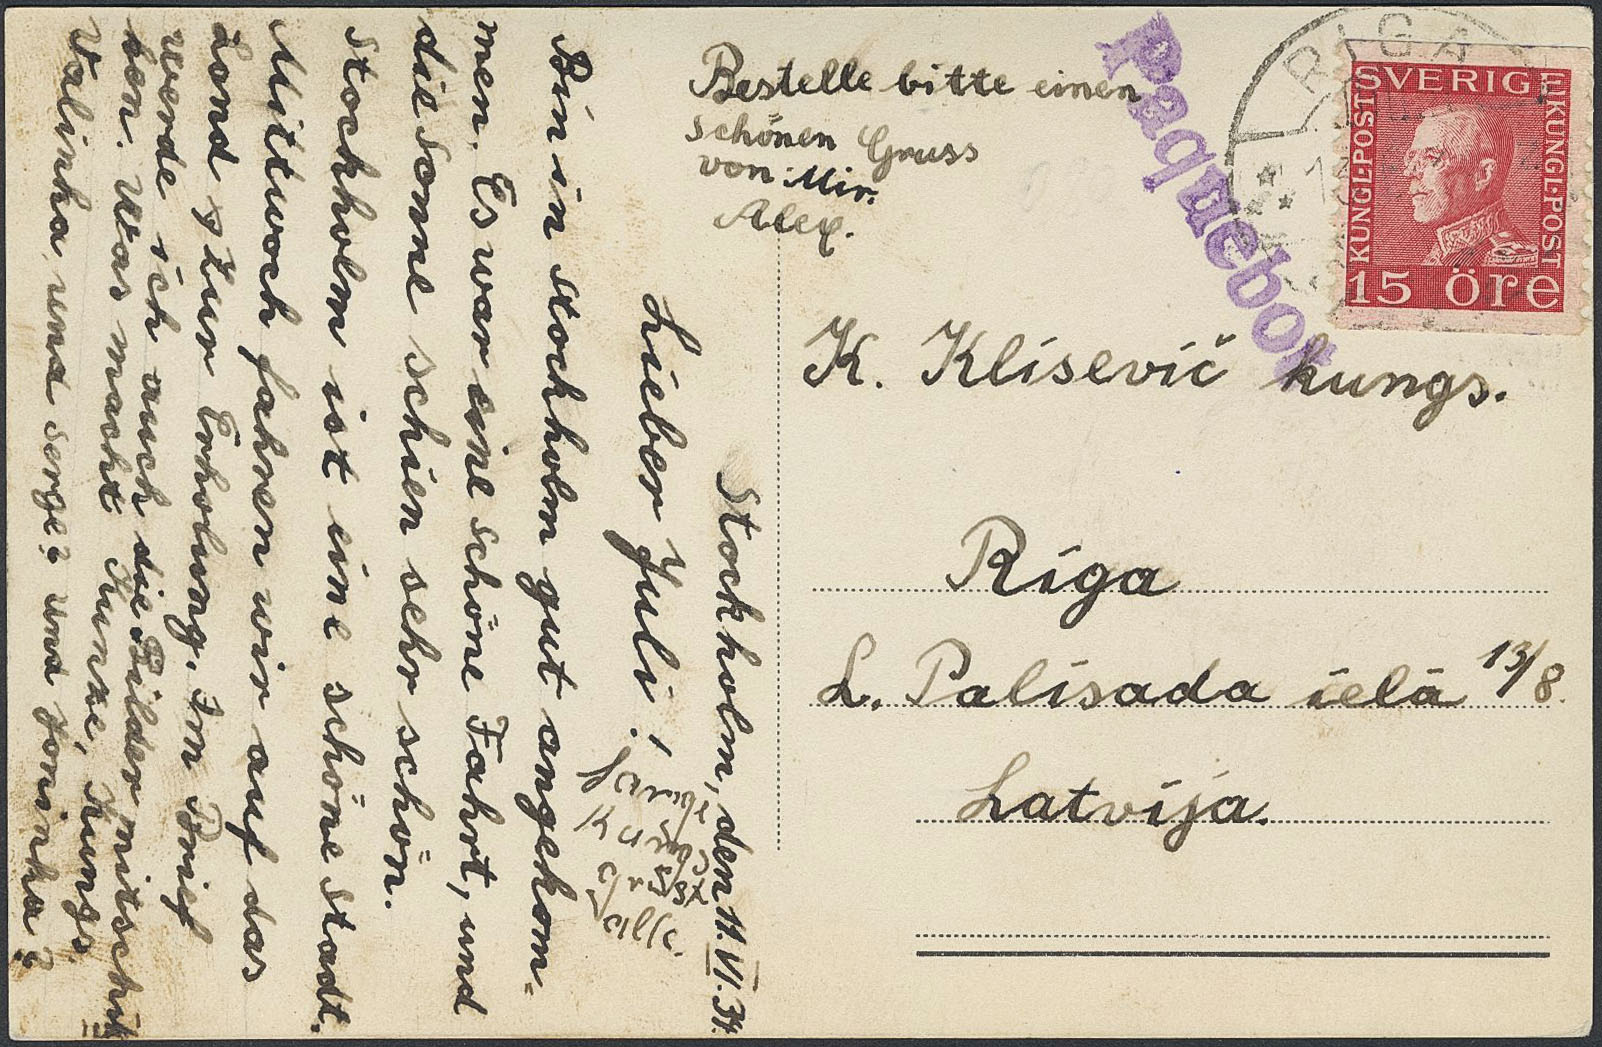 Stockholm, den 11.VI.34.
Lieber Juli!
Bin in Stockholm gut angekom-
men. Es war eine schöne Fahrt, und
die Sonne schien sehr schön.
Stockholm ist eine schöne Stadt.
Mittwoch fahren wir auf das
Land zur Erholung. Im Brief
werde ich auch die Bilder mitschik
ken. Was macht Kunze, Kungs.
Valinka, und Serge? und Joninka?
Kungs
grüsst
alle.
Bestelle bitte einen
schönen Gruss
von Mir.
Alex.
Paquebot
RIGA
SVERIGE
KUNGL·POST
KUNGL·POST
15 öre
K. Klisevič kungs.
Riga
L. Palisada ielā 13/8.
Latvija.